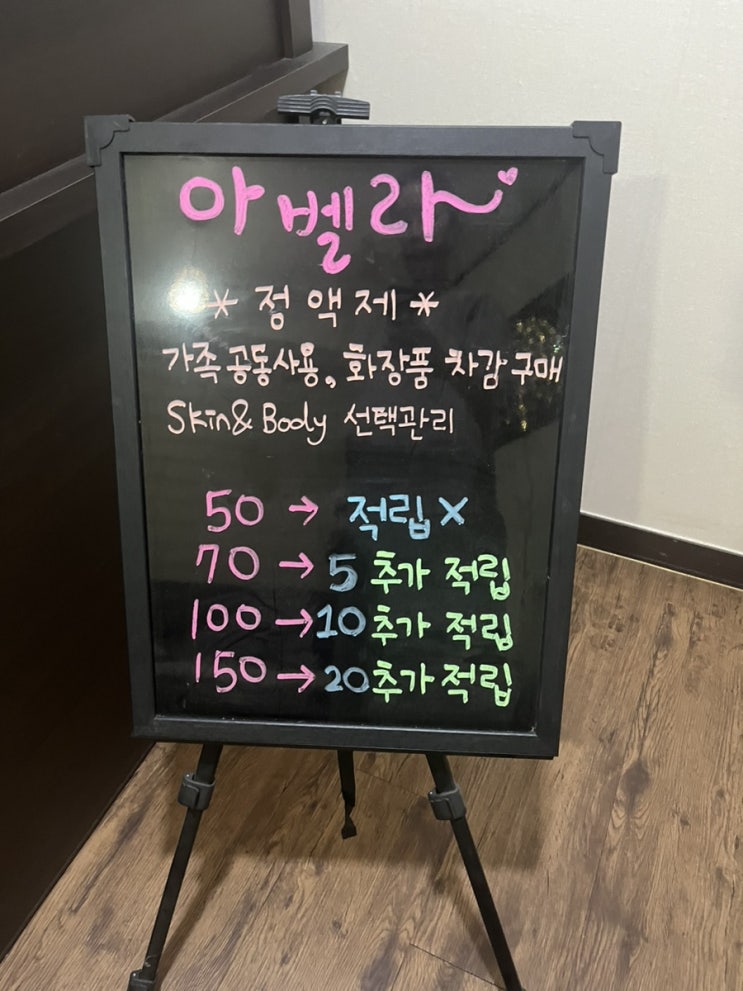 아벨라
* 정액제 *
가족 공동사용, 화장품 차감 구매
Skin & Body 선택관리
50 → 적립 X
70 → 5 추가 적립
100 → 10 추가 적립
150 → 20 추가 적립